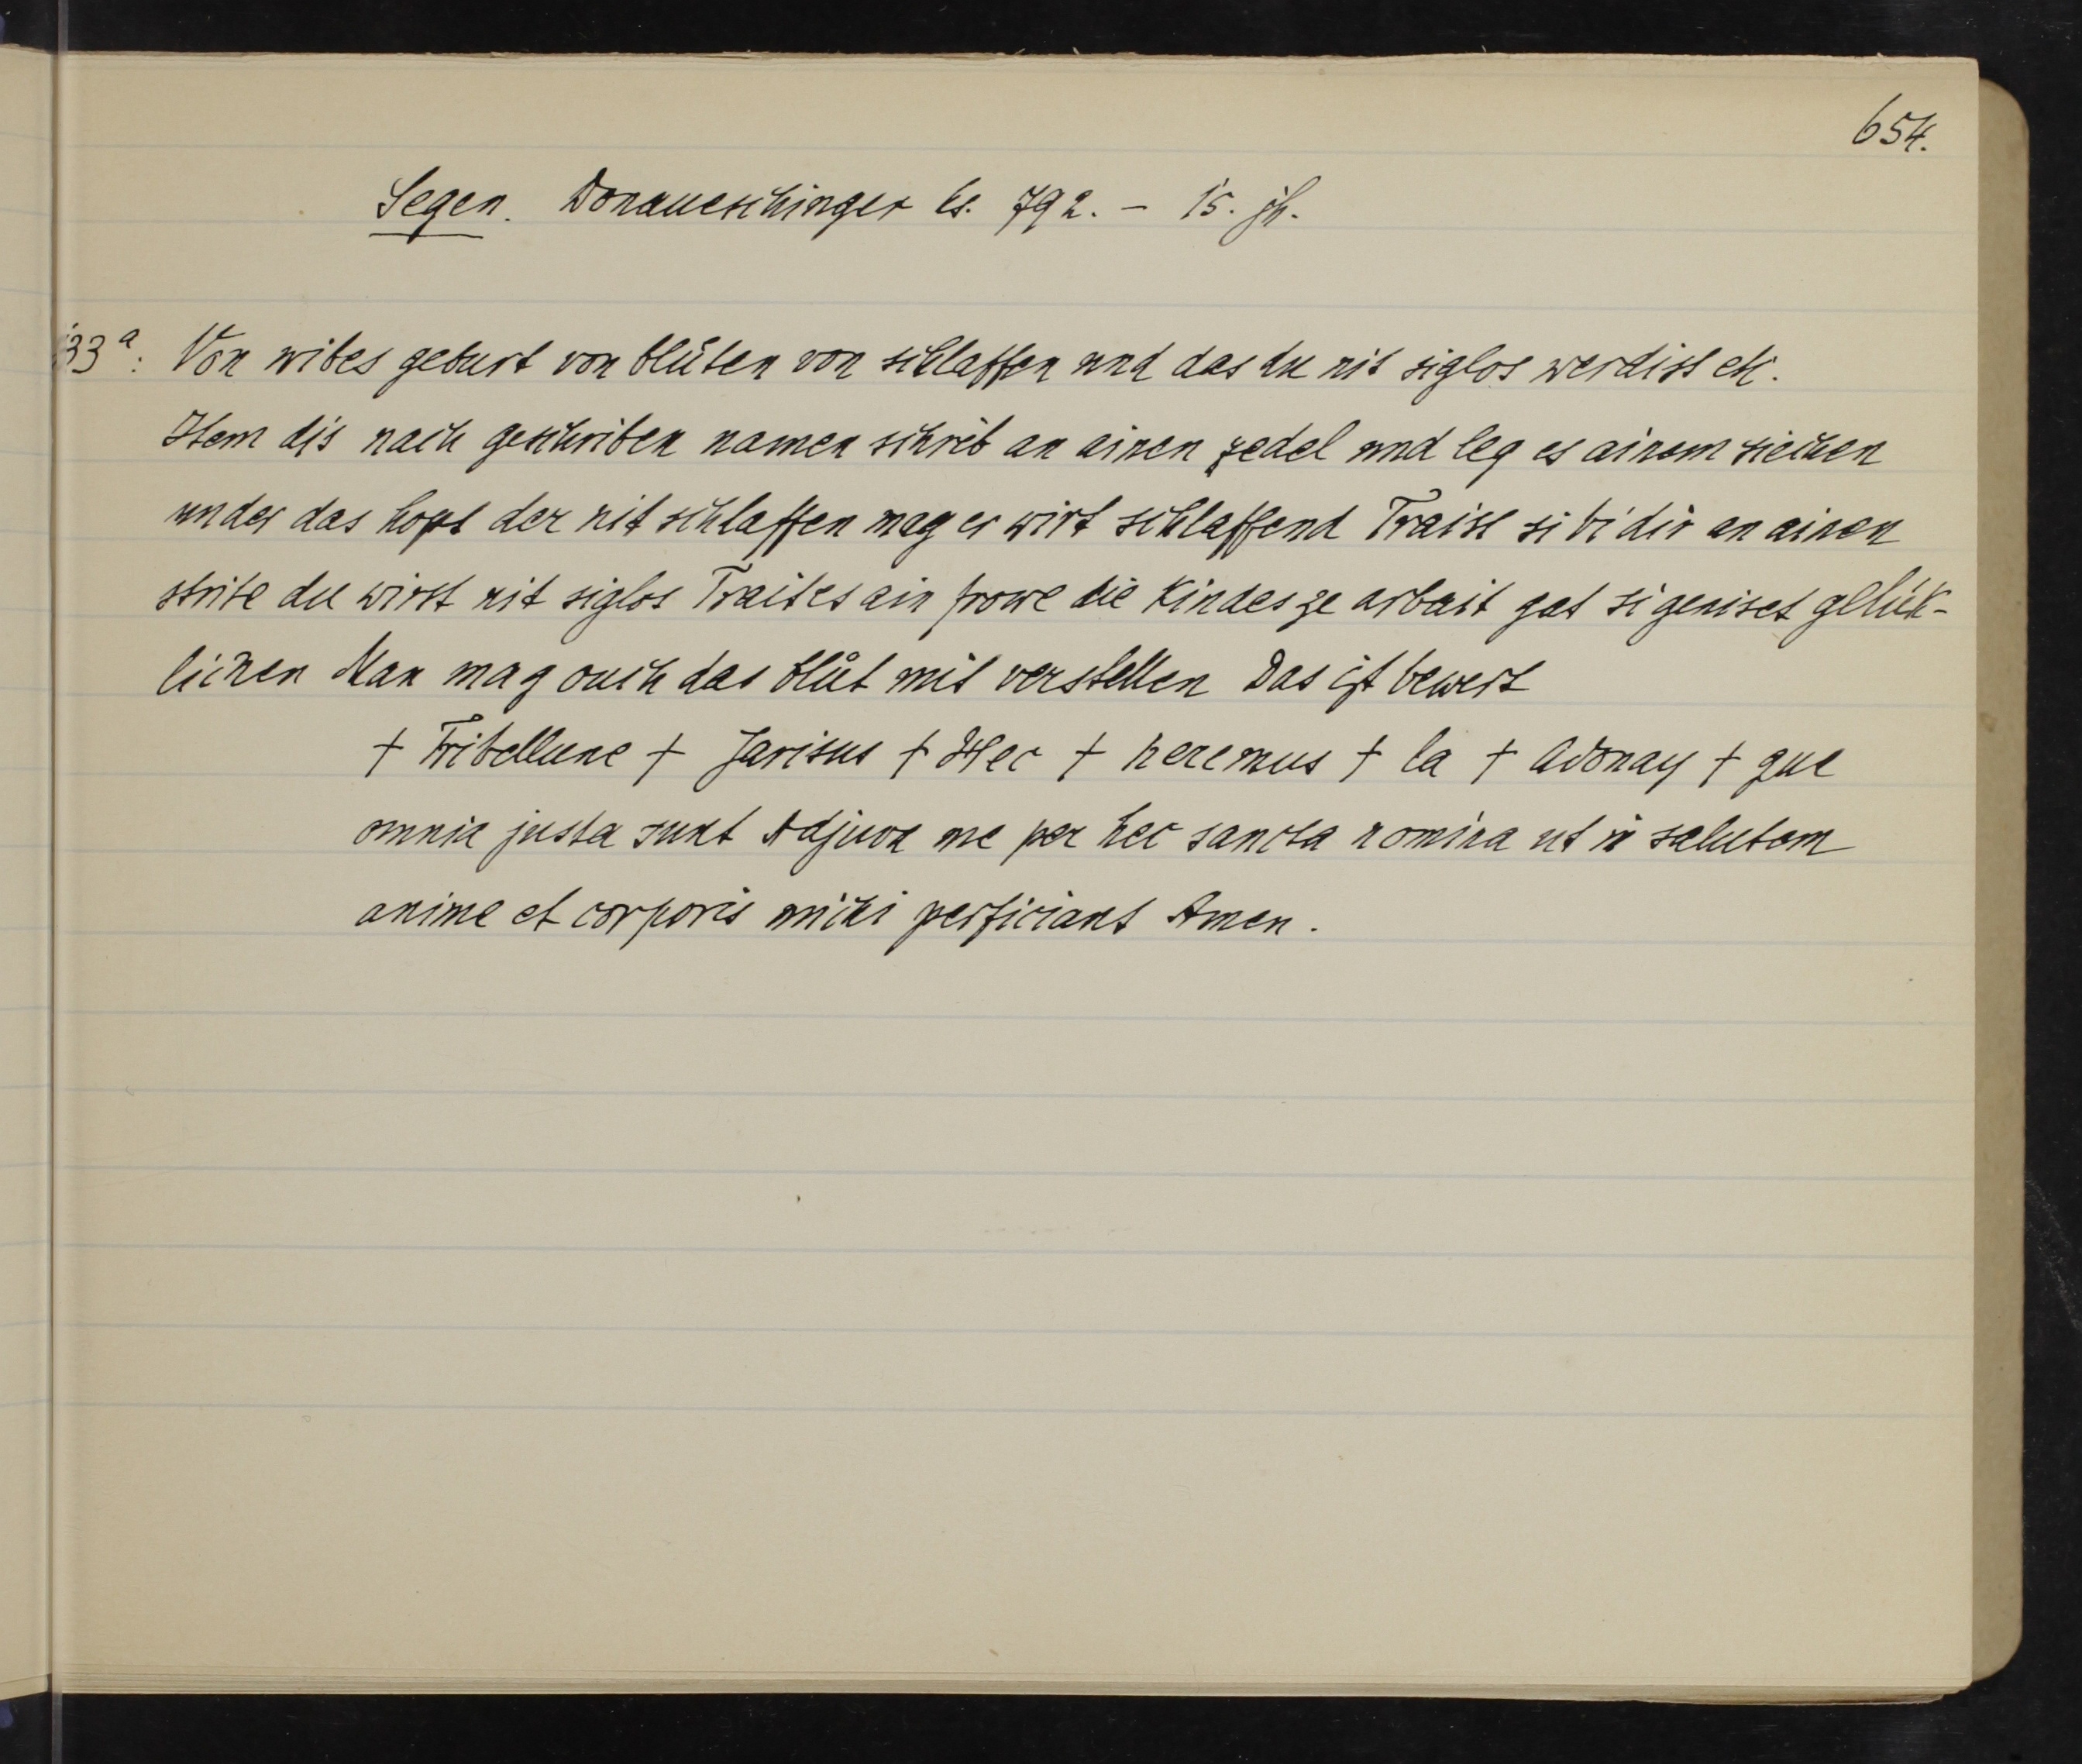 654.
Segen. Donaueschinger hs. 792. – 15. jh.
133ª: Von wibes geburt von blůten von schlaffen und das du nit siglos werdist etc.
Item dis nach geschriben namen schrib an ainen zedel und leg es ainem siechen
under das hopt der nit schlaffen mag er wirt schlaffend Traist si bi dir an ainen
strite du wirst nit siglos Traites ain frowe die Kindes ze arbait gat si geniset glük-
lichen Man mag ouch das blůt mit verstellen Das ist bewert
+ Tribellune + Jarisus + Hec + heremus + la + Adonay + que
omnia justa sunt Adjuva me per hec sancta nomina ut in salutem
anime et corporis michi perficiant Amen.